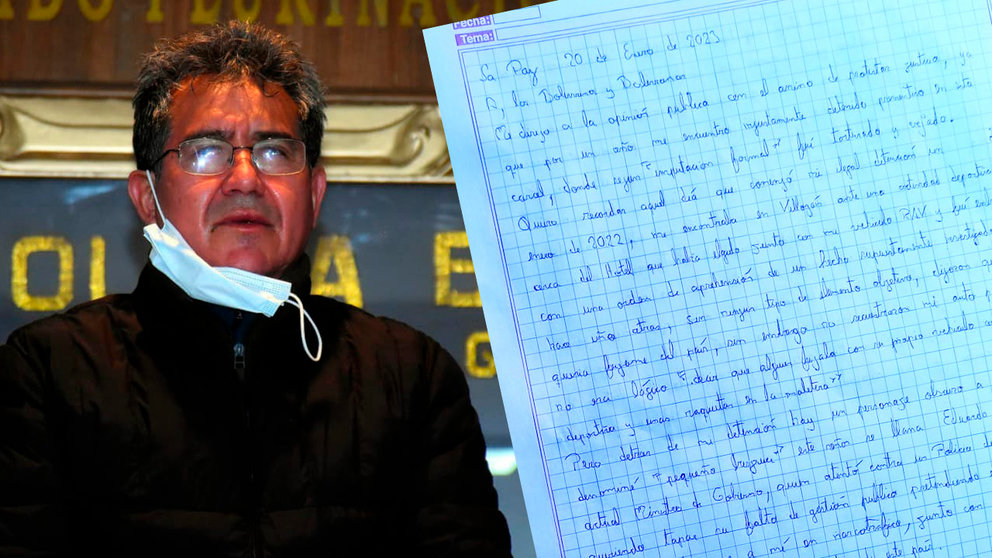 ADO PLURINACI
OLI A E
G
Fecha:
Tema:
La Paz 20 de Enero de 2023
A los Bolivianos y Bolivianas
Me dirijo a la opinión pública con el animo de protestar justicia, ya
que por un año me encuentro injustamente detenido preventivo en esta
carcel, donde según "imputacion formal" fuí torturado y vejado.
Quiero recordar aquel día que comenzó mi ilegal detención un
enero de 2022, me encontraba en Villazón ante una actividad deportiva
cerca del Hotel que había llegado junto con mi vehiculo RAV y fuí
con una orden de aprehensión de un hecho supuestamente investigado
hace años atras, sin ningun tipo de elemento objetivo, dijeron que
queria fugarme del país, sin embargo no secuestraron mi auto
no era lógico "decir que alguien fugaba con su propio vehiculo
deportiva y unas raquetas en la maletera"
Pero detras de mi detención hay un personaje obscuro a
denominé "pequeño burgues" este señor se llama Eduardo
actual Ministro de Gobierno, quien atentó contra un Policia
queriendo tapar su falta de gestión publica pretendiendo
a mé en narcotrafico, junto con
este país